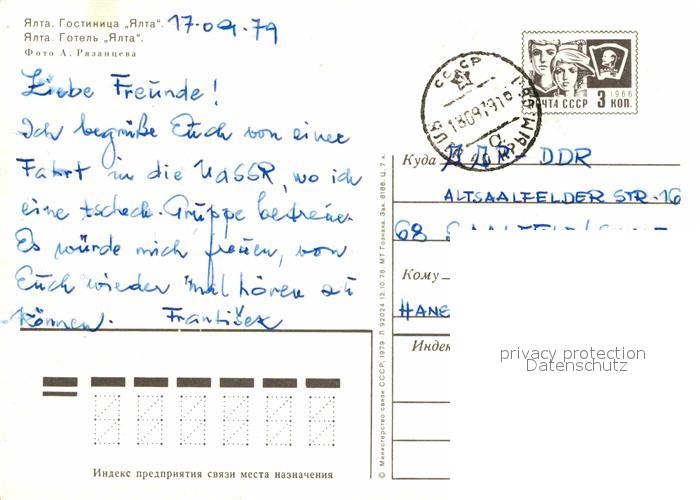 Ялта. Гостиница „Ялта“. 17.09.79
Ялта. Готель „Ялта“.
Фото А. Рязанцева
Liebe Freunde!
Ich begrüße Euch von einer
Fahrt in die UdSSR, wo ich
eine tschech. Gruppe betreue.
Es würde mich freuen, von
Euch wieder 'mal hören zu
können. František
СССР
ПОЧТА СССР 3 КОП.
1966
Куда ГДР - DDR
ALTSAALFELDER STR. 16
68 SAALFELD/
Кому
HANE
Индек
privacy protection
Datenschutz
© Министерство связи СССР, 1979. Л 92024 12.10.78. МТ Гознака. Зак. 8188. Ц. 7 к.
Индекс предприятия связи места назначения